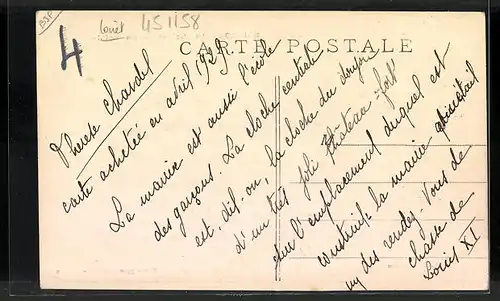 BSF
Loiret
451158
4
CARTE POSTALE
Thérèse Chardel
carte achetée en avril 1929
La mairie est aussi l'école
des garçons. La cloche centrale
est, dit-on, la cloche du donjon
d'un très joli château-fort
sur l'emplacement duquel est
construite la mairie. C'était
un des rendez-vous de
chasse de
Louis XI